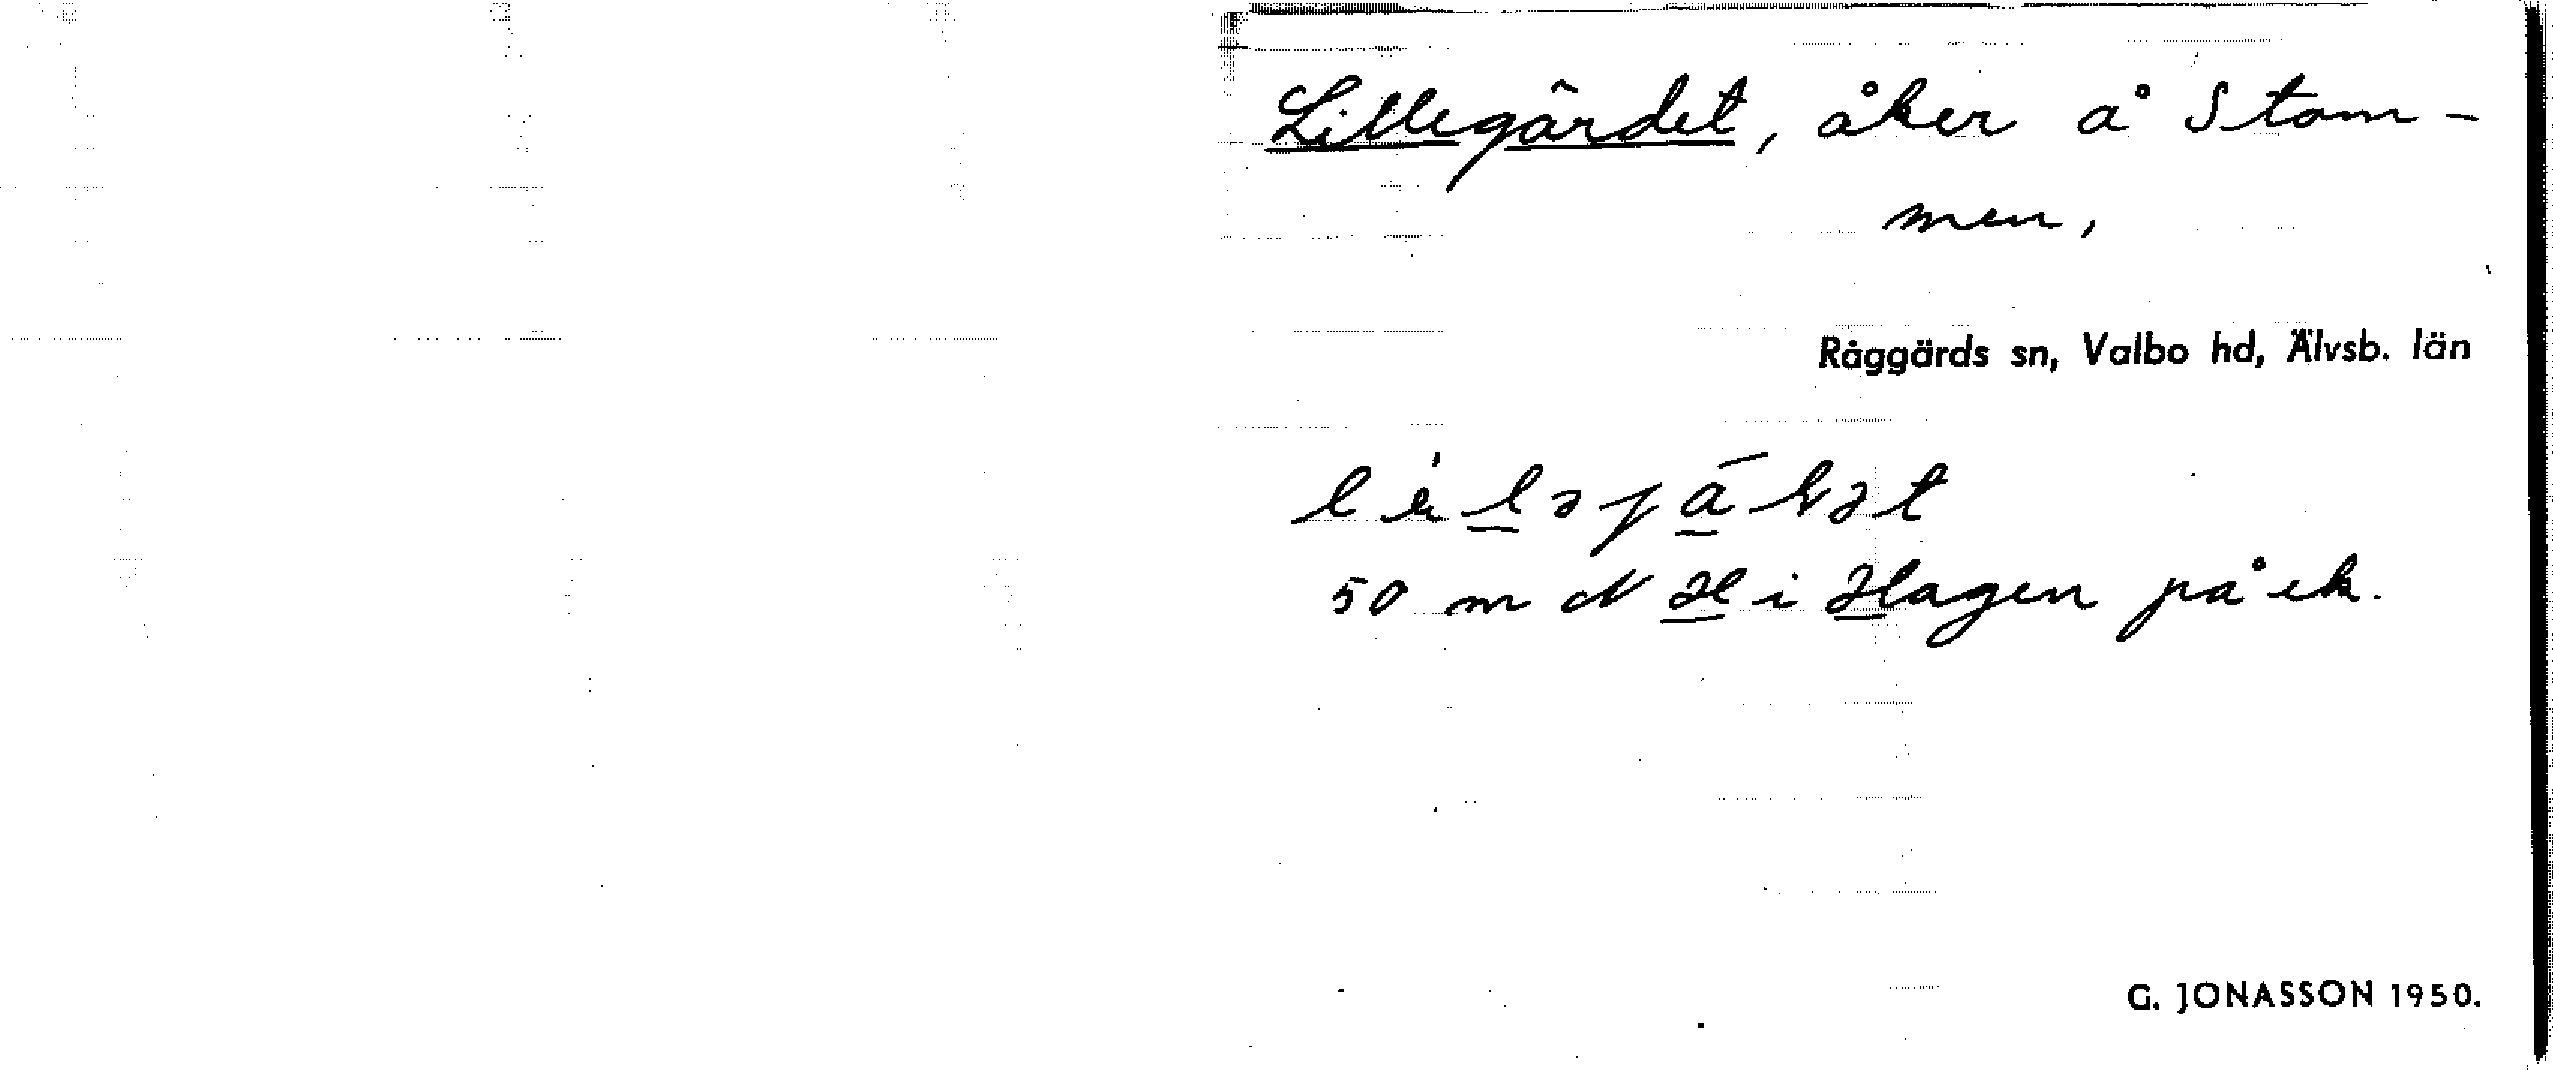 Lillegärdet, åker å Stom-
men,
Råggärds sn, Valbo hd, Älvsb. län
50 m N H i Hagen på ek.
G. JONASSON 1950.